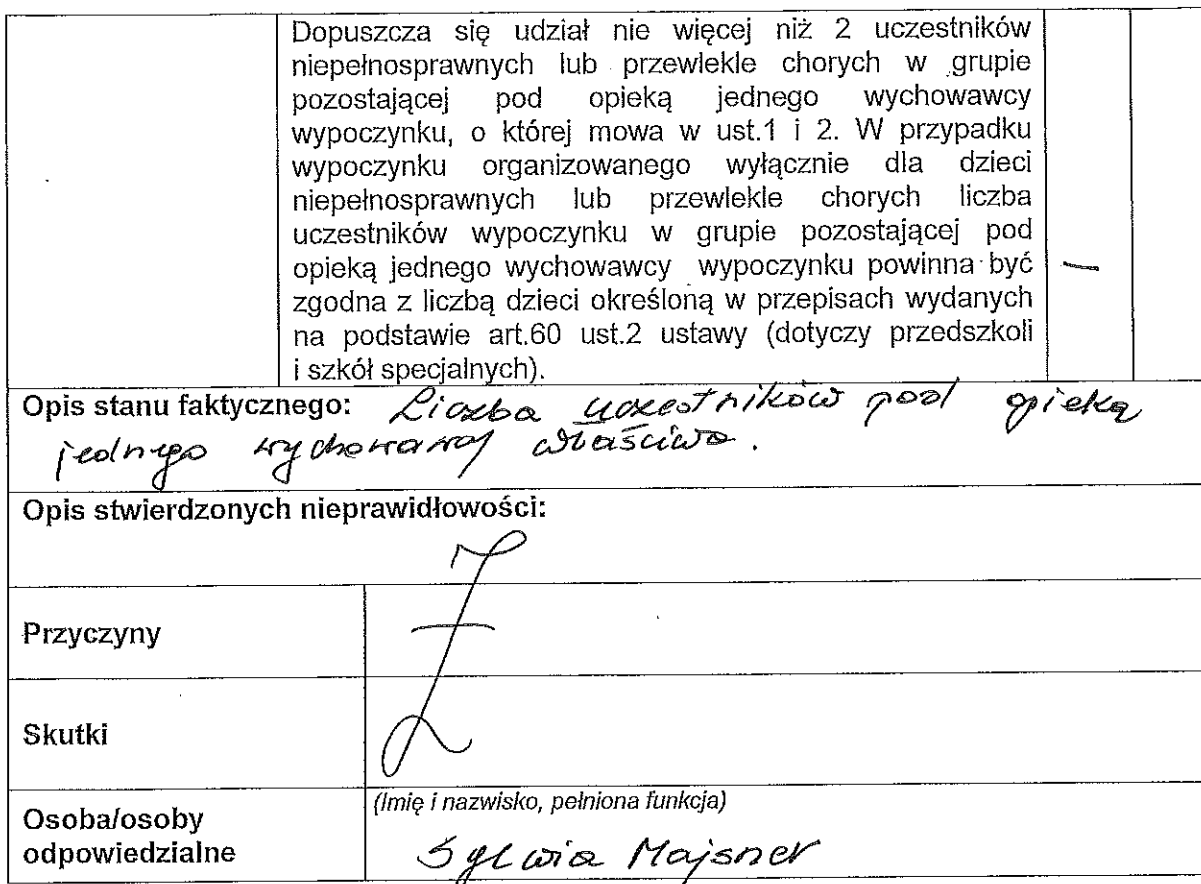 Dopuszcza się udział nie więcej niż 2 uczestników
niepełnosprawnych lub przewlekle chorych w grupie
pozostającej pod opieką jednego wychowawcy
wypoczynku, o której mowa w ust.1 i 2. W przypadku
wypoczynku organizowanego wyłącznie dla dzieci
niepełnosprawnych lub przewlekle chorych liczba
uczestników wypoczynku w grupie pozostającej pod
opieką jednego wychowawcy wypoczynku powinna być
zgodna z liczbą dzieci określoną w przepisach wydanych
na podstawie art.60 ust.2 ustawy (dotyczy przedszkoli
i szkół specjalnych).
—
Opis stanu faktycznego: Liczba uczestników pod opieką
jednego wychowawcy właściwa.
Opis stwierdzonych nieprawidłowości:
Przyczyny
Skutki
Osoba/osoby
odpowiedzialne
(Imię i nazwisko, pełniona funkcja)
Sylwia Majsner